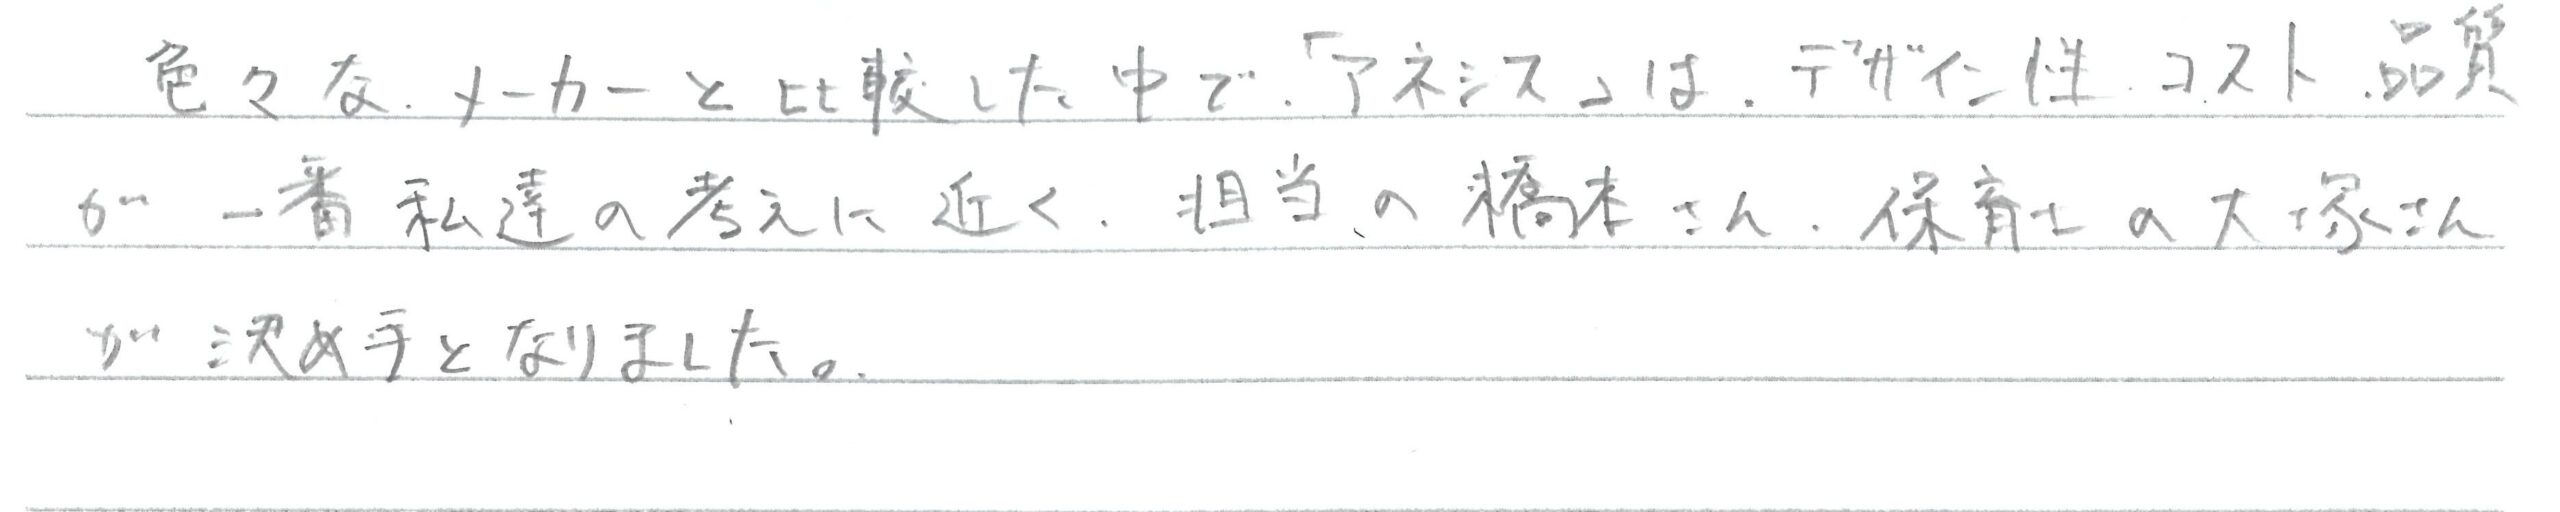 色々な、メーカーと比較した中で、「アネシス」は、デザイン性、コスト、品質
が一番私達の考えに近く、担当の橋本さん、保育士の大塚さん
が決め手となりました。